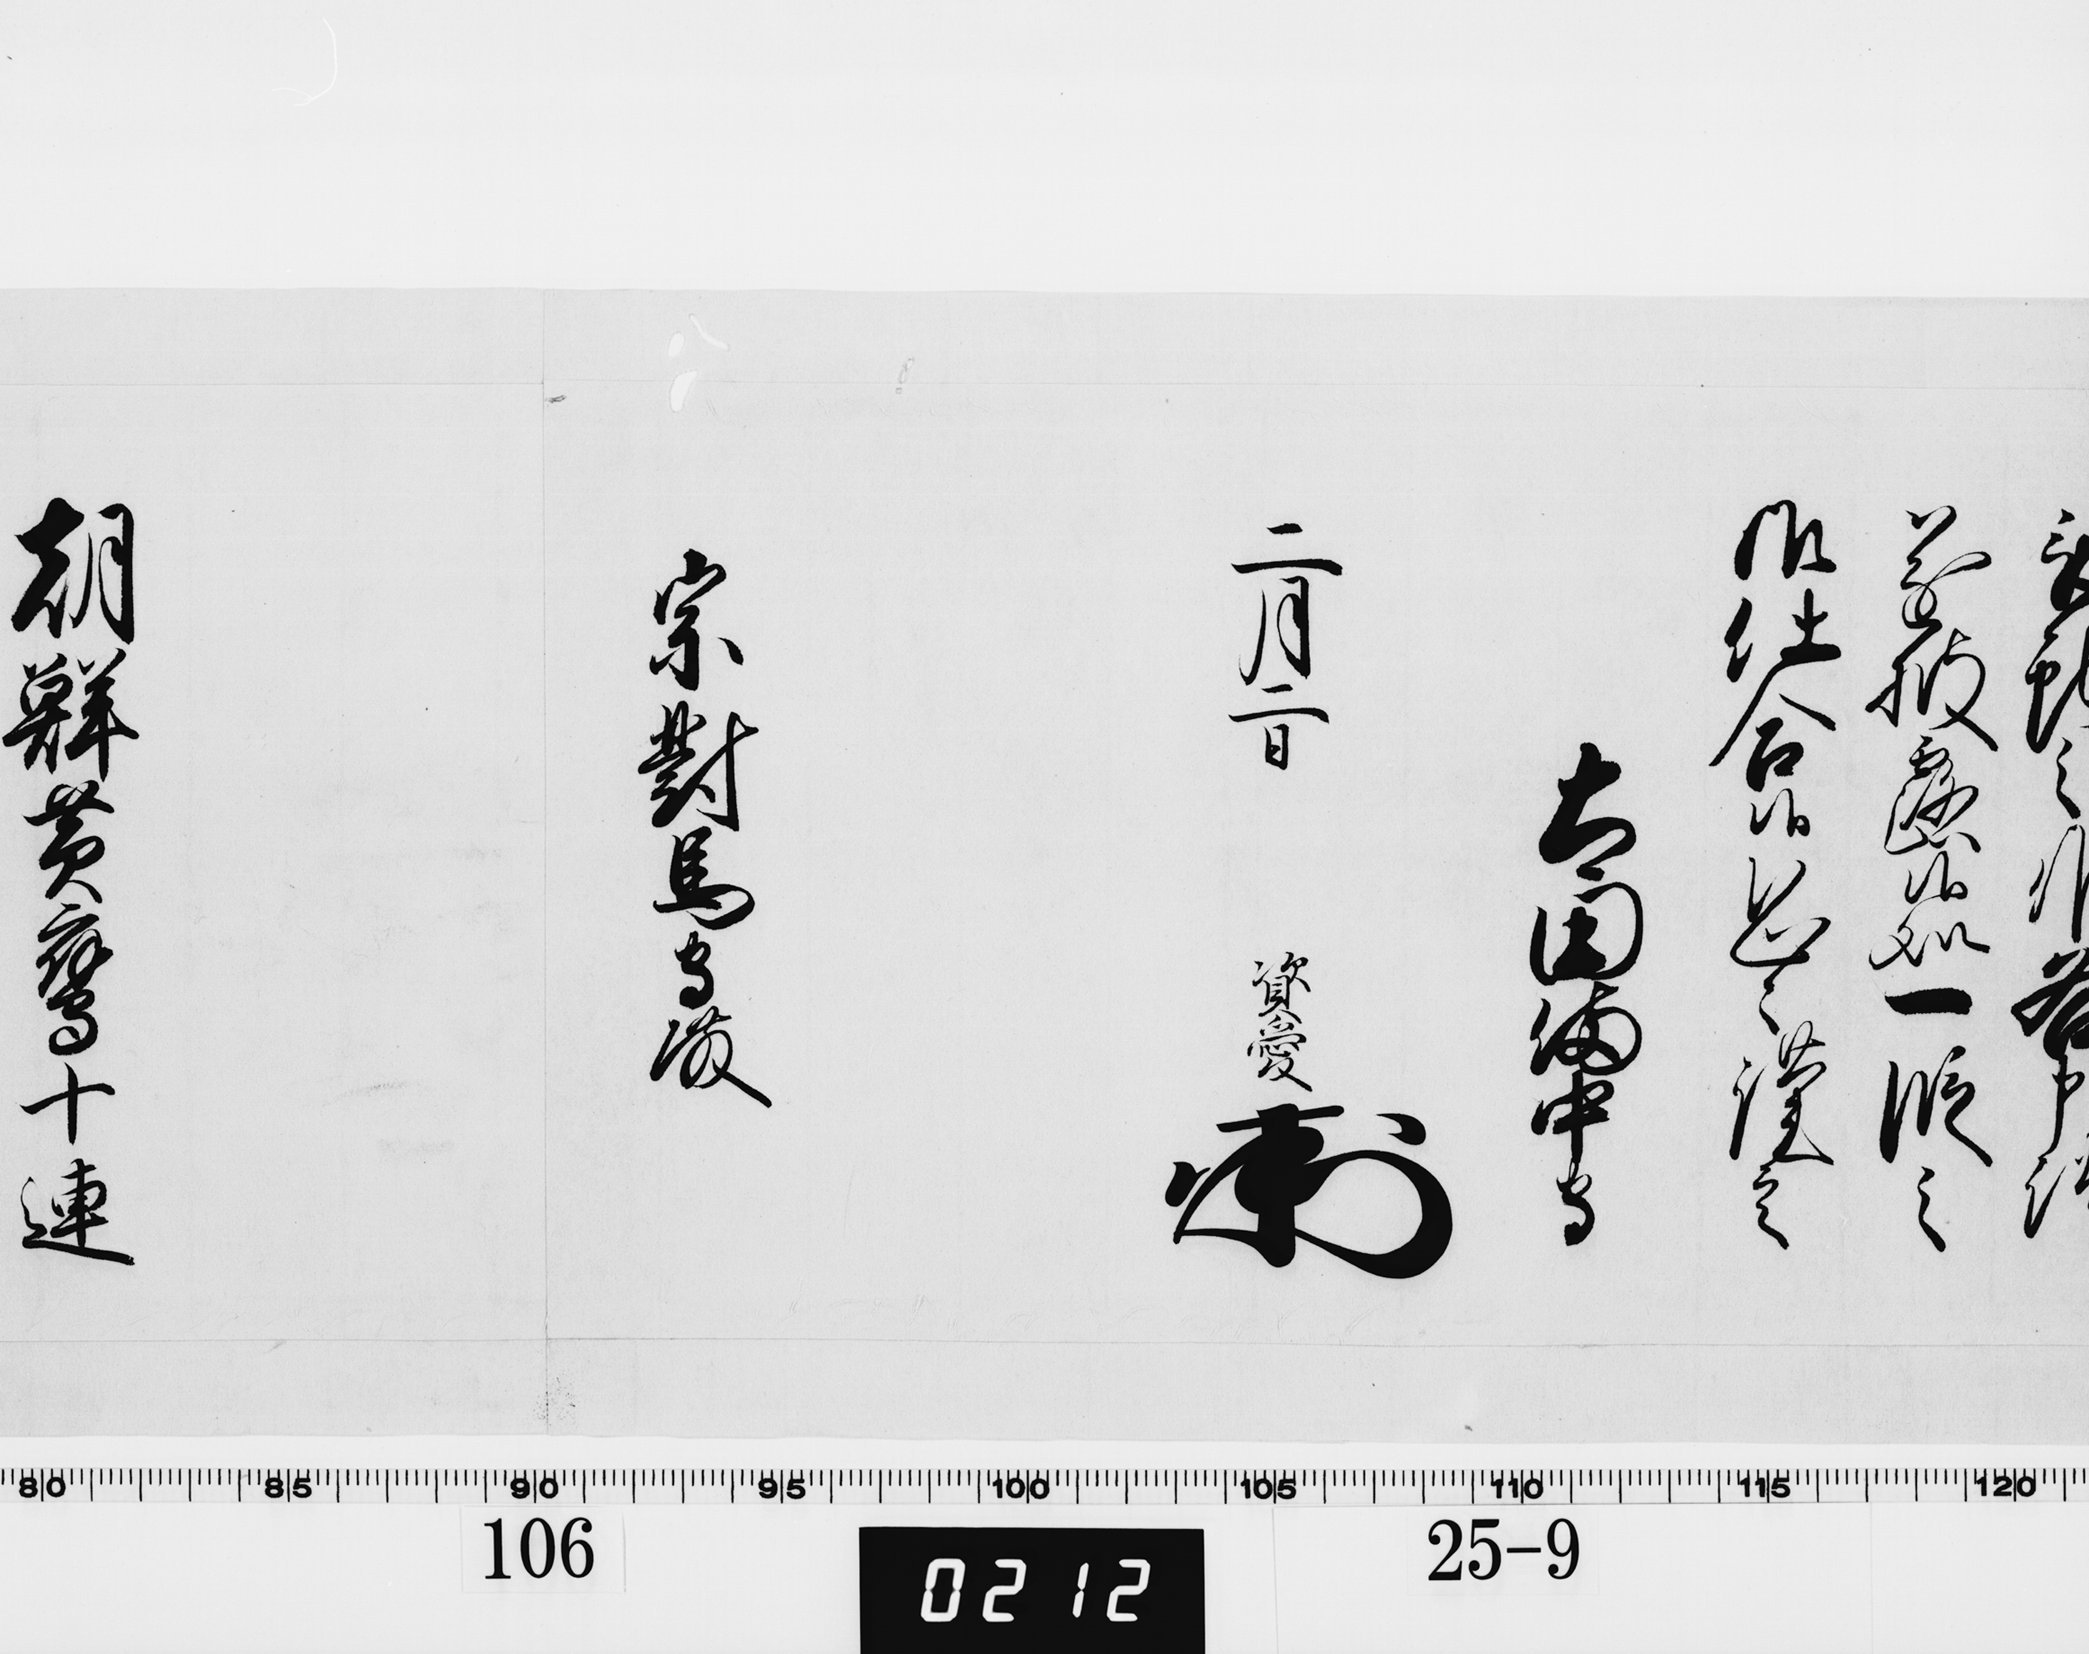 遂披露候処一段之
御仕合候恐々謹言
太田備中守
二月二日 資愛
宗對馬守殿
朝鮮黄鷹十連
80 85 90 95 100 105 110 115 120
106 0212 25-9